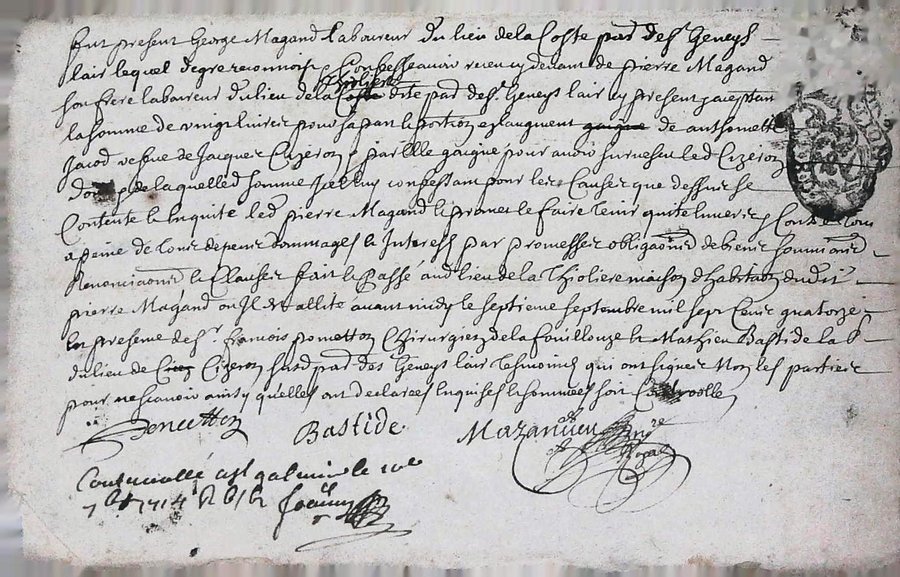 fut present George Magand laboureur du lieu de la Coste par de st Geneys
lair lequel de gre reconnoist Confesse avoir receu cy devant de pierre Magand
son frere laboureur du lieu de la Thioliere dite par de st Geneys lair cy present acceptant
la somme de vingt livres pour sa part et portion et augment de anthomette
Jacod vefve de Jacques Cizeron par Elle gaigne pour avoir survescu led Cizeron
de laquelled somme Icelluy confessant pour les Causes que dessus se
Contente et En quite led pierre Magand et promet le faire tenir quite envers Contre tous
a peine de tous depens dommages et Interests par promesses obligaons de biens soumissions
Renonciaons et Clauses fait et Passé aud lieu de la Thioliere maison d'habitaon dudit
pierre Magand ou Il est allité avant midy le septieme septembre mil sept Cens quatorze
en presence de sr. francois ponetton Chirurgien de la fouillouze et Mathieu Bastide de la
du lieu de Cizeron susd par de st Geneys lair tesmoins qui ont signes Non les parties
pour ne scavoir ainsy quelles ont declarees Enquises et sommees soit Controolle
Ponetton
Bastide
Mazandieu
Nore
Royal
Controoellé a st galmier le
7bre 1714